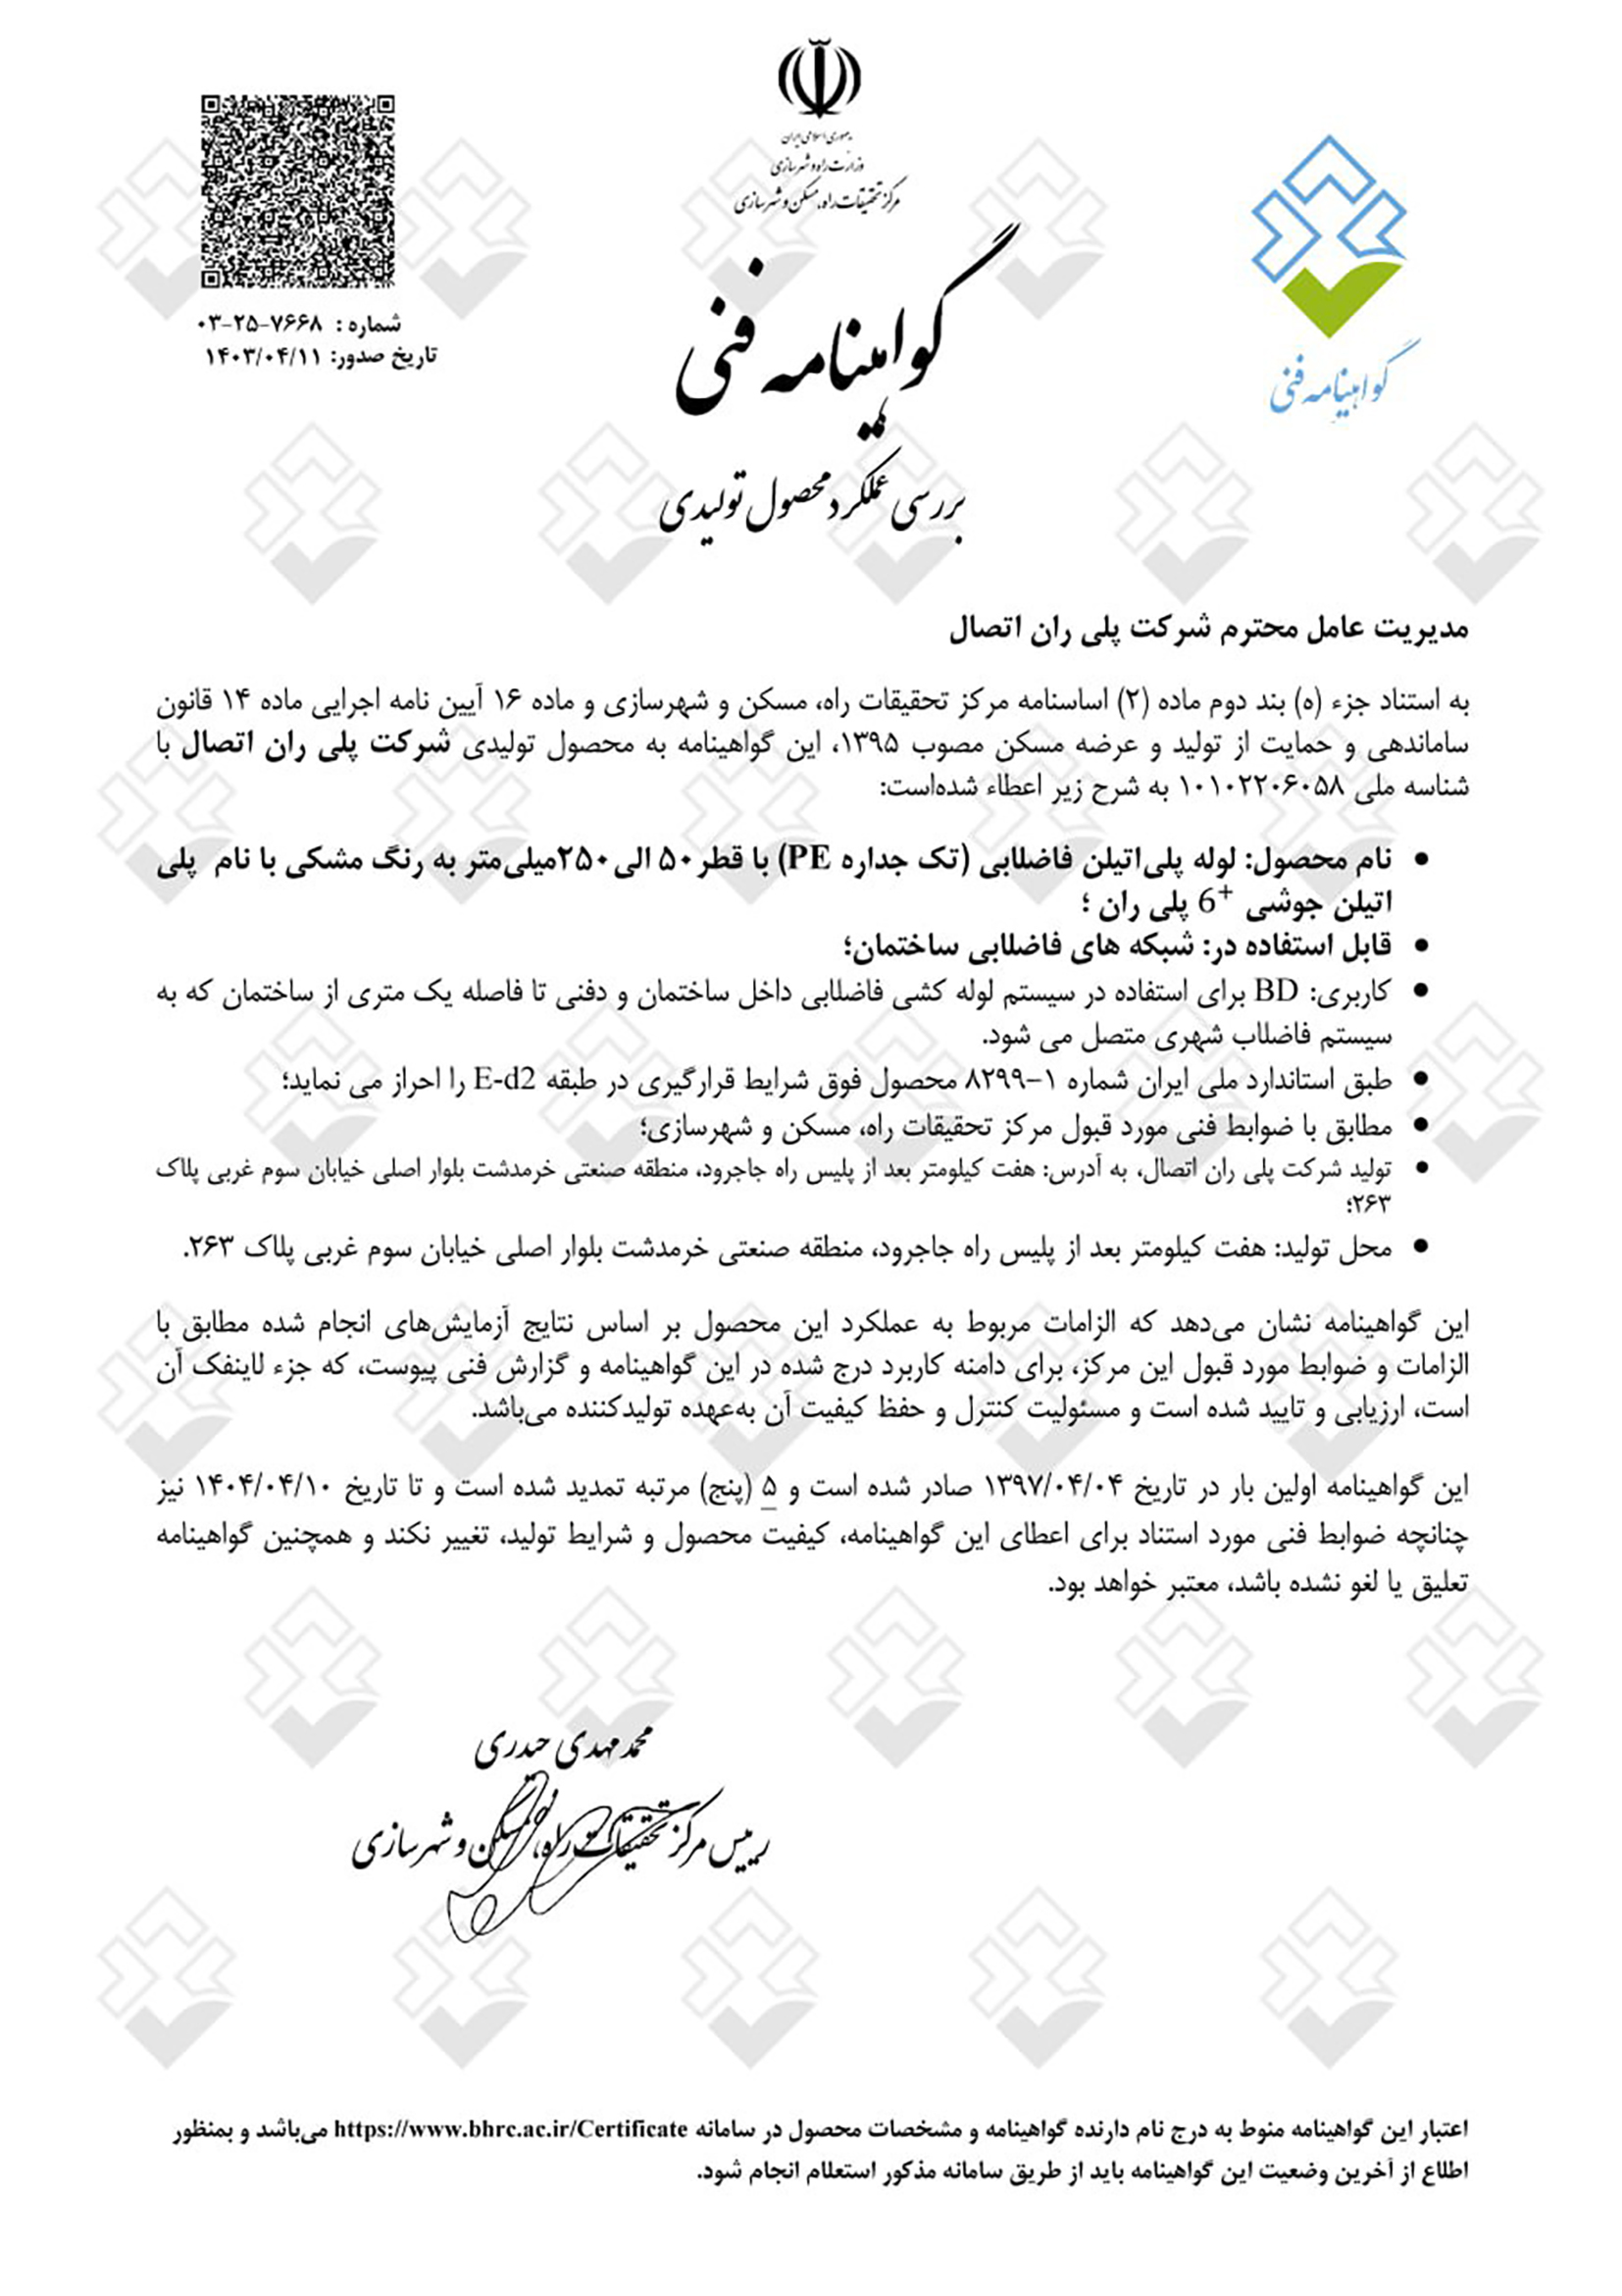 جمهوری اسلامی ایران
وزارت راه و شهرسازی
مرکز تحقیقات راه، مسکن و شهرسازی
گواهینامه فنی
گواهینامه فنی
شماره : ۷۶۶۸-۲۵-۰۳
تاریخ صدور: ۱۴۰۳/۰۴/۱۱
بررسی عملکرد محصول تولیدی
مدیریت عامل محترم شرکت پلی ران اتصال
به استناد جزء (ه) بند دوم ماده (۲) اساسنامه مرکز تحقیقات راه، مسکن و شهرسازی و ماده ۱۶ آیین نامه اجرایی ماده ۱۴ قانون
ساماندهی و حمایت از تولید و عرضه مسکن مصوب ۱۳۹۵، این گواهینامه به محصول تولیدی شرکت پلی ران اتصال با
شناسه ملی ۱۰۱۰۲۲۰۶۰۵۸ به شرح زیر اعطاء شده‌است:
• نام محصول: لوله پلی‌اتیلن فاضلابی (تک جداره PE) با قطر ۵۰ الی ۲۵۰میلی‌متر به رنگ مشکی با نام پلی
اتیلن جوشی 6⁺ پلی ران ؛
• قابل استفاده در: شبکه های فاضلابی ساختمان؛
• کاربری: BD برای استفاده در سیستم لوله کشی فاضلابی داخل ساختمان و دفنی تا فاصله یک متری از ساختمان که به
سیستم فاضلاب شهری متصل می شود.
• طبق استاندارد ملی ایران شماره ۱-۸۲۹۹ محصول فوق شرایط قرارگیری در طبقه E-d2 را احراز می نماید؛
• مطابق با ضوابط فنی مورد قبول مرکز تحقیقات راه، مسکن و شهرسازی؛
• تولید شرکت پلی ران اتصال، به آدرس: هفت کیلومتر بعد از پلیس راه جاجرود، منطقه صنعتی خرمدشت بلوار اصلی خیابان سوم غربی پلاک
۲۶۳؛
• محل تولید: هفت کیلومتر بعد از پلیس راه جاجرود، منطقه صنعتی خرمدشت بلوار اصلی خیابان سوم غربی پلاک ۲۶۳.
این گواهینامه نشان می‌دهد که الزامات مربوط به عملکرد این محصول بر اساس نتایج آزمایش‌های انجام شده مطابق با
الزامات و ضوابط مورد قبول این مرکز، برای دامنه کاربرد درج شده در این گواهینامه و گزارش فنی پیوست، که جزء لاینفک آن
است، ارزیابی و تایید شده است و مسئولیت کنترل و حفظ کیفیت آن به‌عهده تولیدکننده می‌باشد.
این گواهینامه اولین بار در تاریخ ۱۳۹۷/۰۴/۰۴ صادر شده است و ۵ (پنج) مرتبه تمدید شده است و تا تاریخ ۱۴۰۴/۰۴/۱۰ نیز
چنانچه ضوابط فنی مورد استناد برای اعطای این گواهینامه، کیفیت محصول و شرایط تولید، تغییر نکند و همچنین گواهینامه
تعلیق یا لغو نشده باشد، معتبر خواهد بود.
محمد مهدی حیدری
رییس مرکز تحقیقات راه، مسکن و شهرسازی
اعتبار این گواهینامه منوط به درج نام دارنده گواهینامه و مشخصات محصول در سامانه https://www.bhrc.ac.ir/Certificate می‌باشد و بمنظور
اطلاع از آخرین وضعیت این گواهینامه باید از طریق سامانه مذکور استعلام انجام شود.